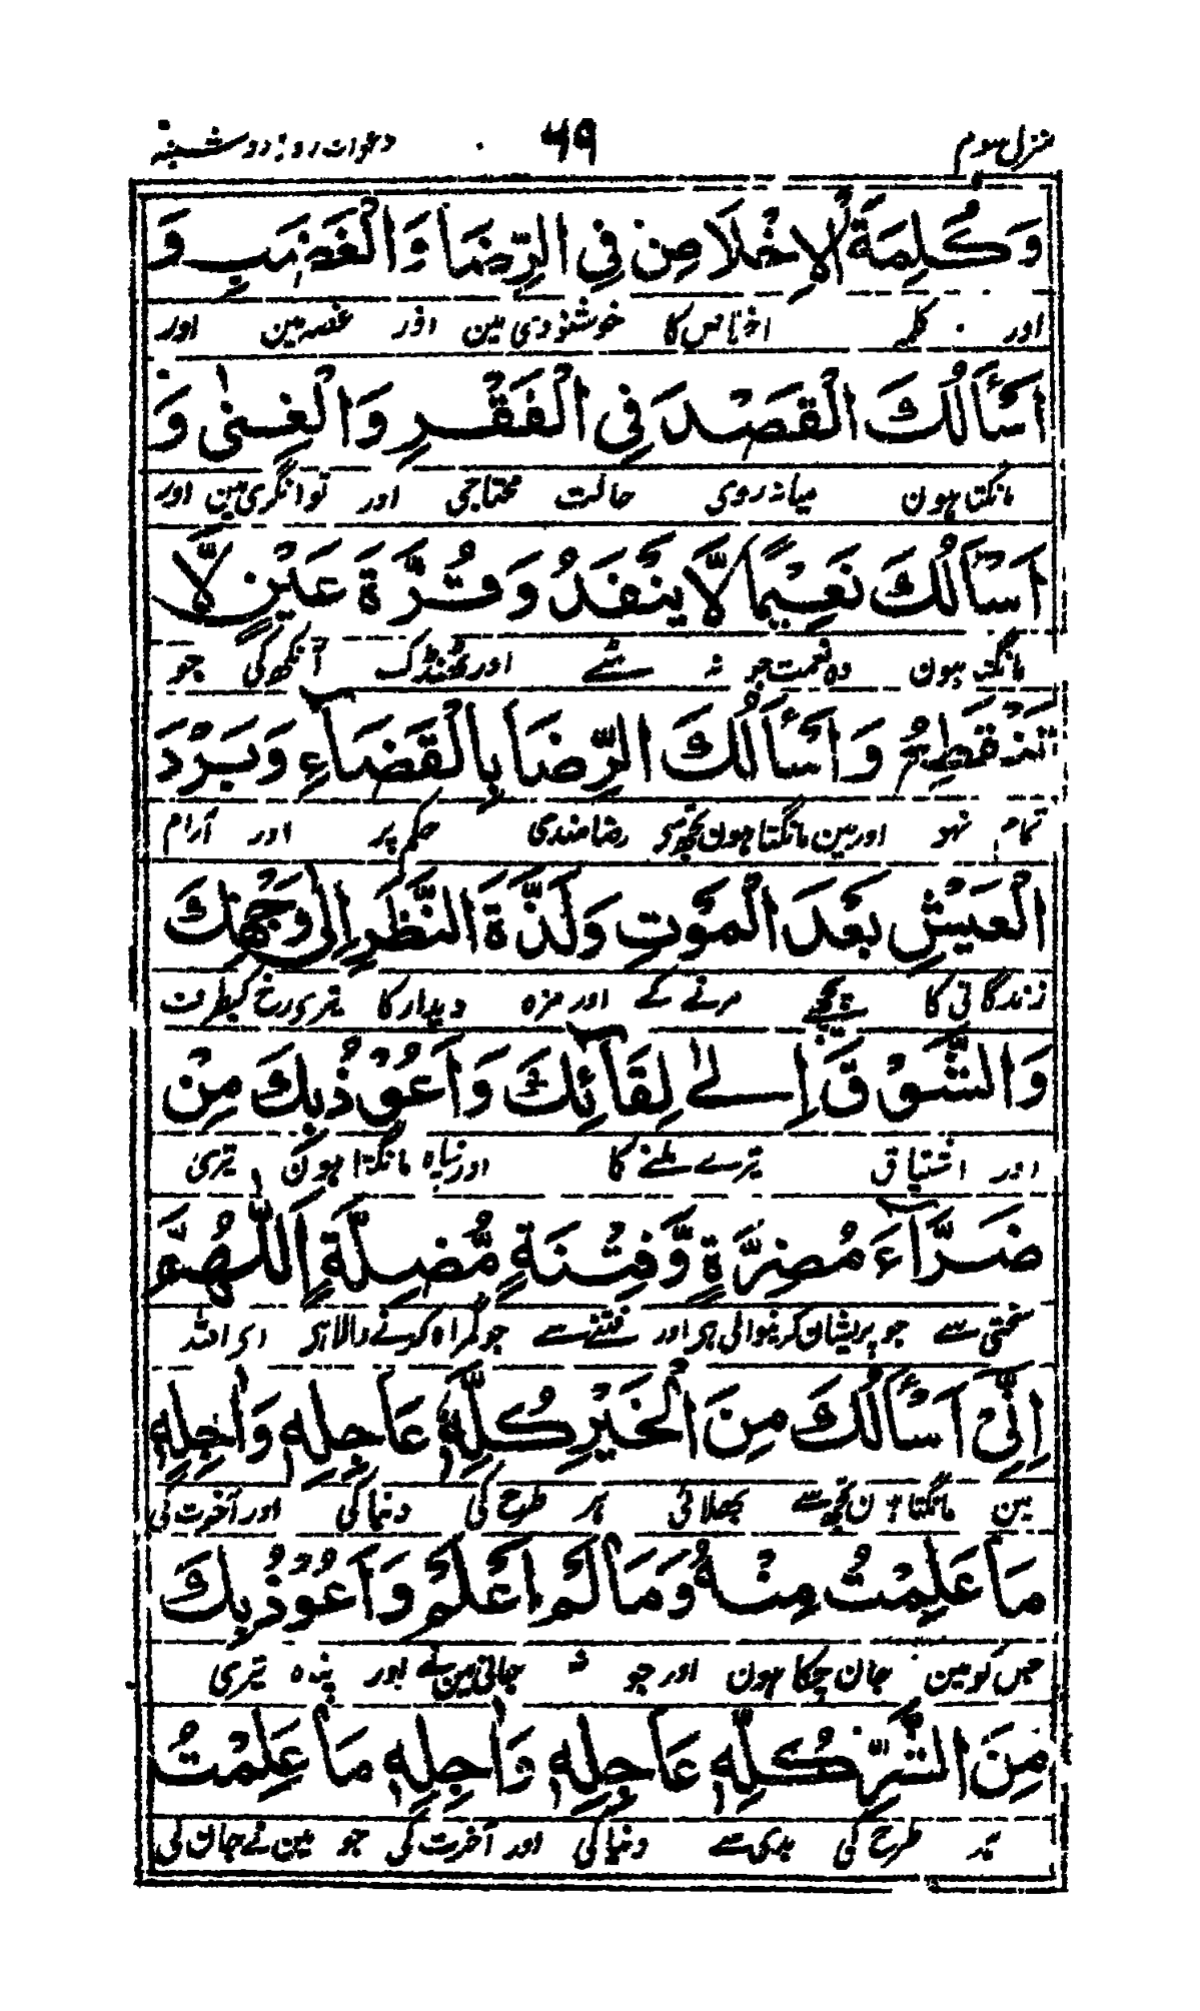 منزل سوم ۶۹ دعوات روز دوشنبہ
وَكَلِمَةَ الْاِخْلَاصِ فِي الرِّضَا وَالْغَضَبِ وَ
اور کلمہ اخلاص کا خوشنودی مین اور غصہ مین اور
اَسْأَلُكَ الْقَصْدَ فِي الْفَقْرِ وَالْغِنٰى وَ
مانگتا ہون میانہ روی حالت محتاجی اور توانگری مین اور
اَسْأَلُكَ نَعِيْمًا لَّا يَنْفَدُ وَقُرَّةَ عَيْنٍ لَّا
مانگتا ہون وہ نعمت جو نہ مٹے اور ٹھنڈک آنکھ کی جو
تَنْقَطِعُ وَاَسْأَلُكَ الرِّضَا بِالْقَضَآءِ وَبَرْدَ
تمام نہو اور مین مانگتا ہون تجھ سے رضامندی حکم پر اور آرام
الْعَيْشِ بَعْدَ الْمَوْتِ وَلَذَّةَ النَّظَرِ اِلٰى وَجْهِكَ
زندگانی کا پیچھے مرنے کے اور مزہ دیدار کا تیری رخ کیطرف
وَالشَّوْقَ اِلٰى لِقَآئِكَ وَاَعُوْذُ بِكَ مِنْ
اور اشتیاق تیرے ملنے کا اور پناہ مانگتا ہون تیری
ضَرَّآءَ مُضِرَّةٍ وَّفِتْنَةٍ مُّضِلَّةٍ اَللّٰهُمَّ
سختی سے جو پریشان کرنیوالی ہی اور فتنے سے جو گمراہ کرنے والا ہی ای اللہ
اِنِّىْ اَسْأَلُكَ مِنَ الْخَيْرِ كُلِّهٖ عَاجِلِهٖ وَاٰجِلِهٖ
مین مانگتا ہون تجھ سے بھلائی ہر طرح کی دنیا کی اور آخرت کی
مَا عَلِمْتُ مِنْهُ وَمَا لَمْ اَعْلَمْ وَاَعُوْذُ بِكَ
جس کو مین جان چکا ہون اور جو نہ جانی مین نے اور پناہ تیری
مِنَ الشَّرِّ كُلِّهٖ عَاجِلِهٖ وَاٰجِلِهٖ مَا عَلِمْتُ
ہر طرح کی بدی سے دنیا کی اور آخرت کی جو مین نے جان لی